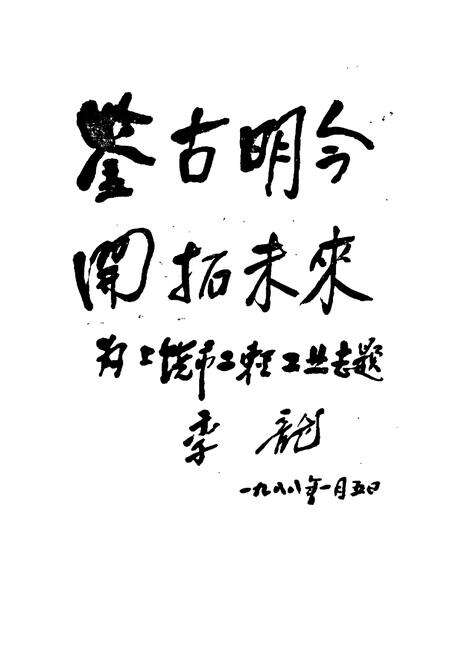 鉴古明今
開拓未來
为上饶市二轻工业志题
李龍
一九八八年一月五日